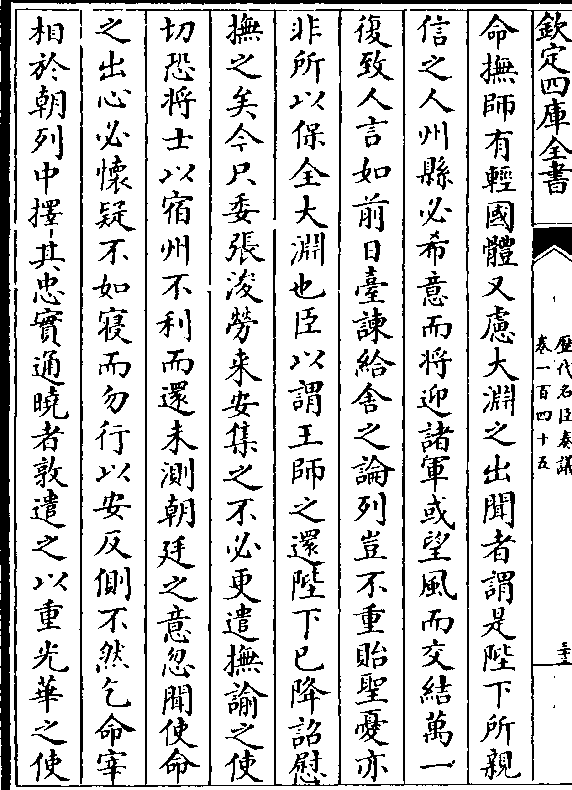 欽定四庫全書
歷代名臣奏議
卷一百四十五
三十三
命撫師有輕國體又慮大淵之出聞者謂是陛下所親
信之人州縣必希意而將迎諸軍或望風而交結萬一
復致人言如前日臺諫給舍之論列豈不重貽聖憂亦
非所以保全大淵也臣以謂王師之還陛下已降詔慰
撫之矣今只委張浚勞來安集之不必更遣撫諭之使
切恐將士以宿州不利而還未測朝廷之意忽聞使命
之出心必懷疑不如寢而勿行以安反側不然乞命宰
相於朝列中擇其忠實通曉者敦遣之以重光華之使